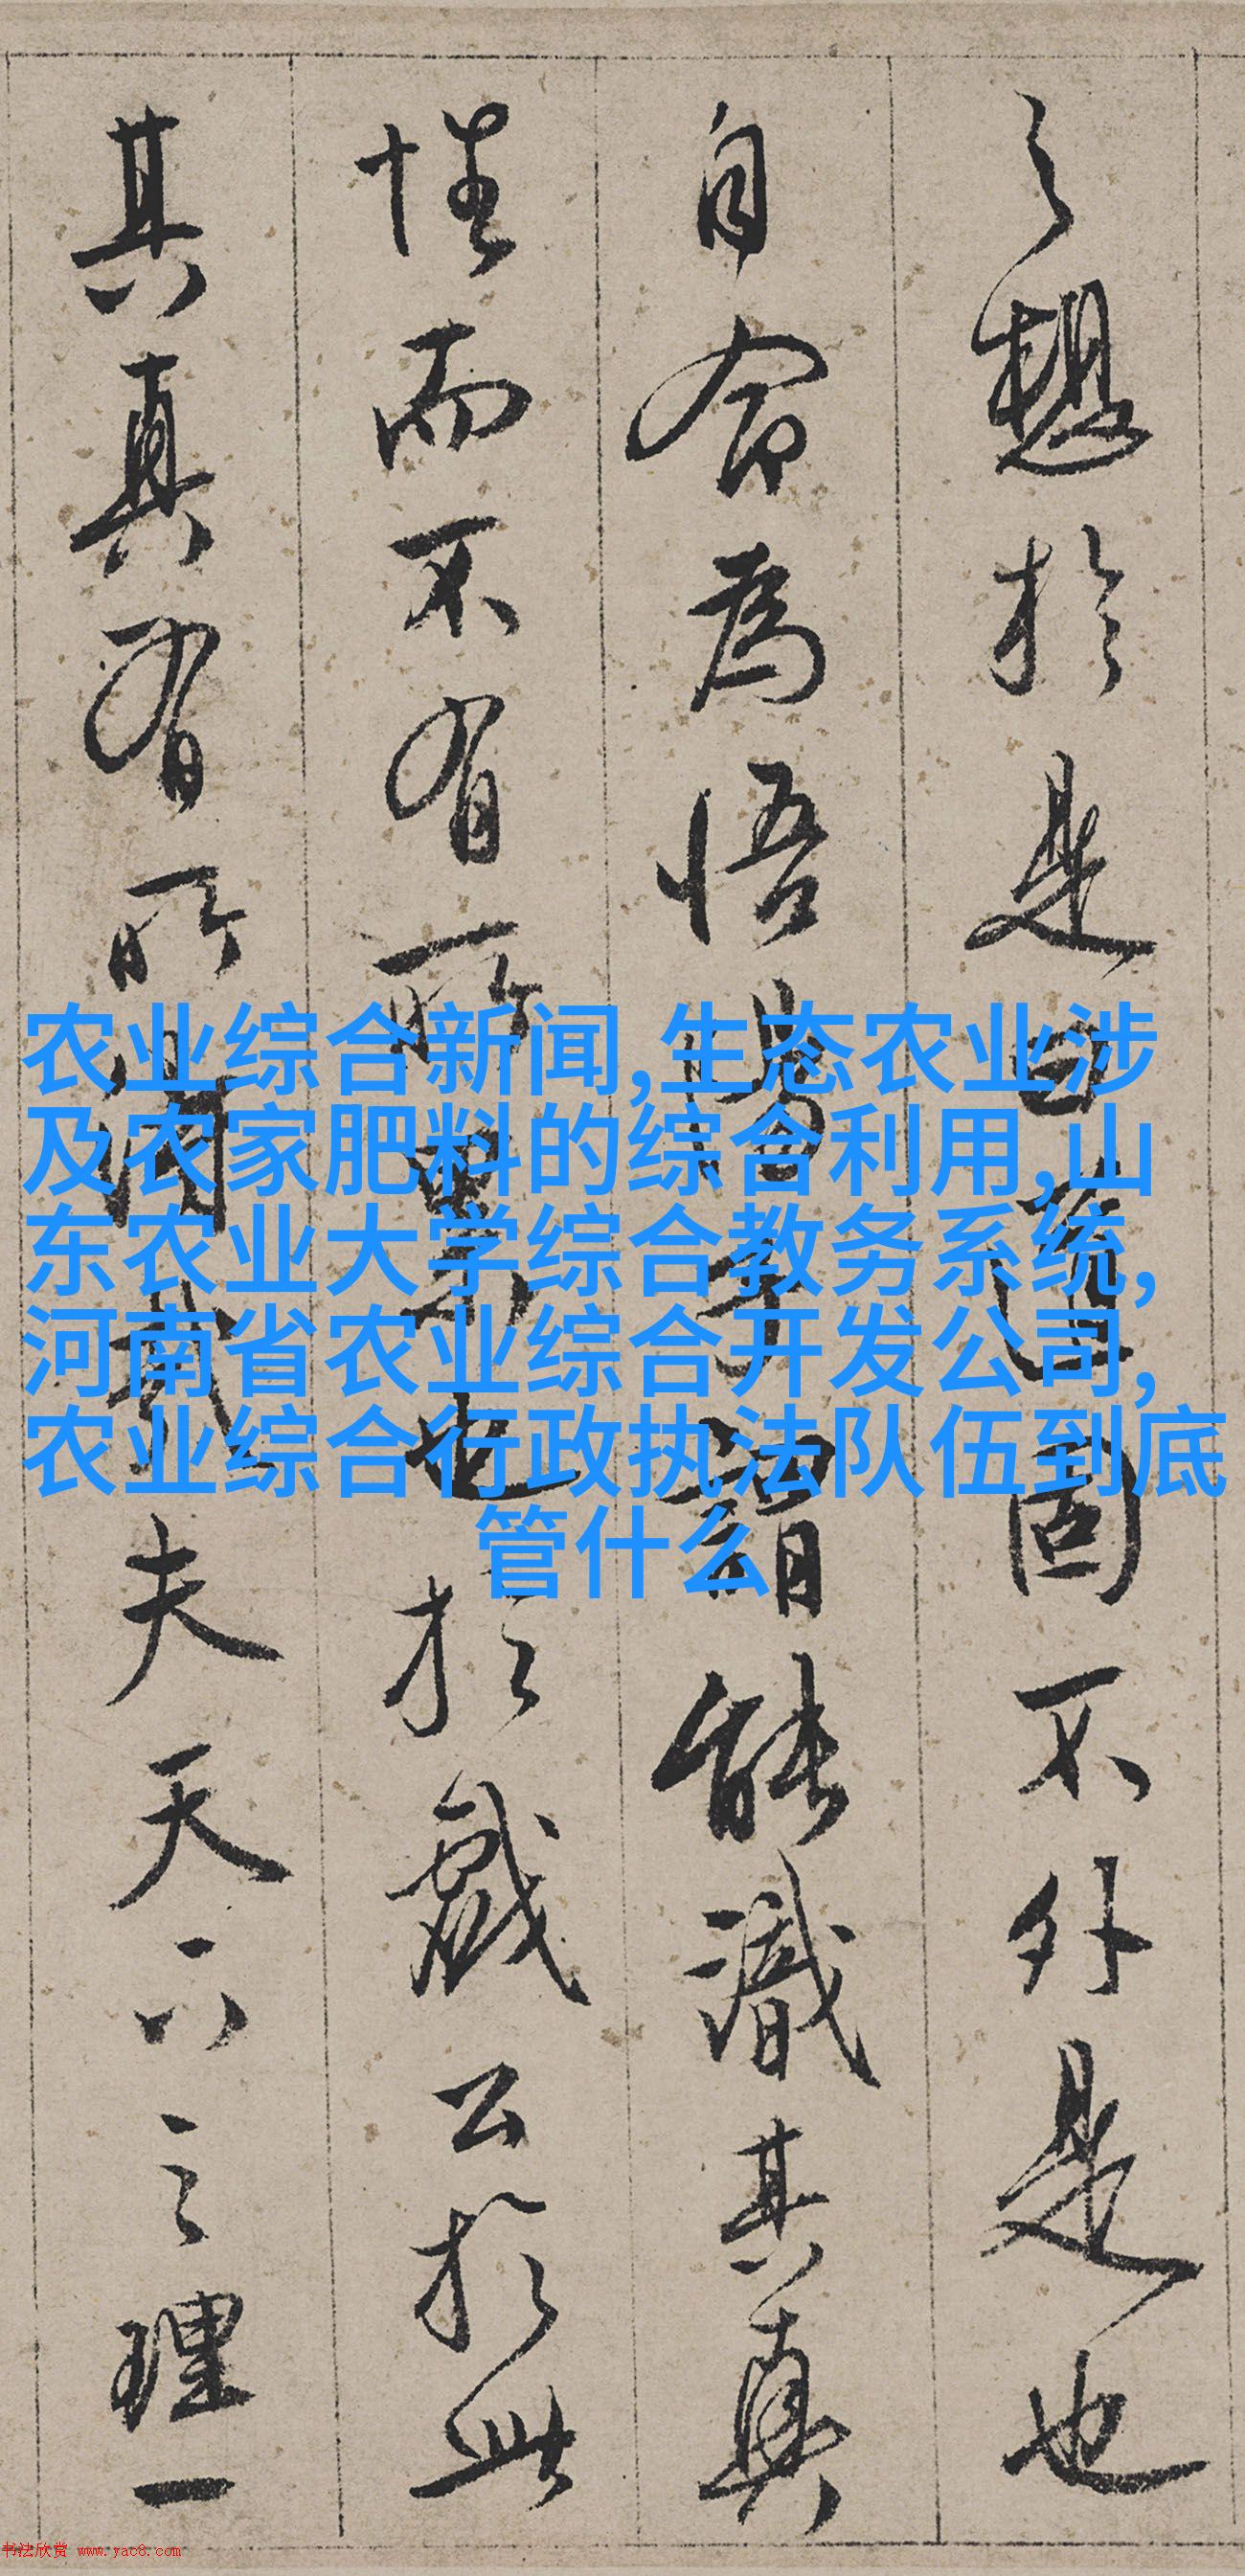 之想於是
不外是也
自含為悟
能識其真
性而不有所
於戲公於此
其真有所
夫天下之理一
农业综合新闻,生态农业涉
及农家肥料的综合利用,山
东农业大学综合教务系统,
河南省农业综合开发公司,
农业综合行政执法队伍到底
管什么
书法欣赏 www.yac8.com